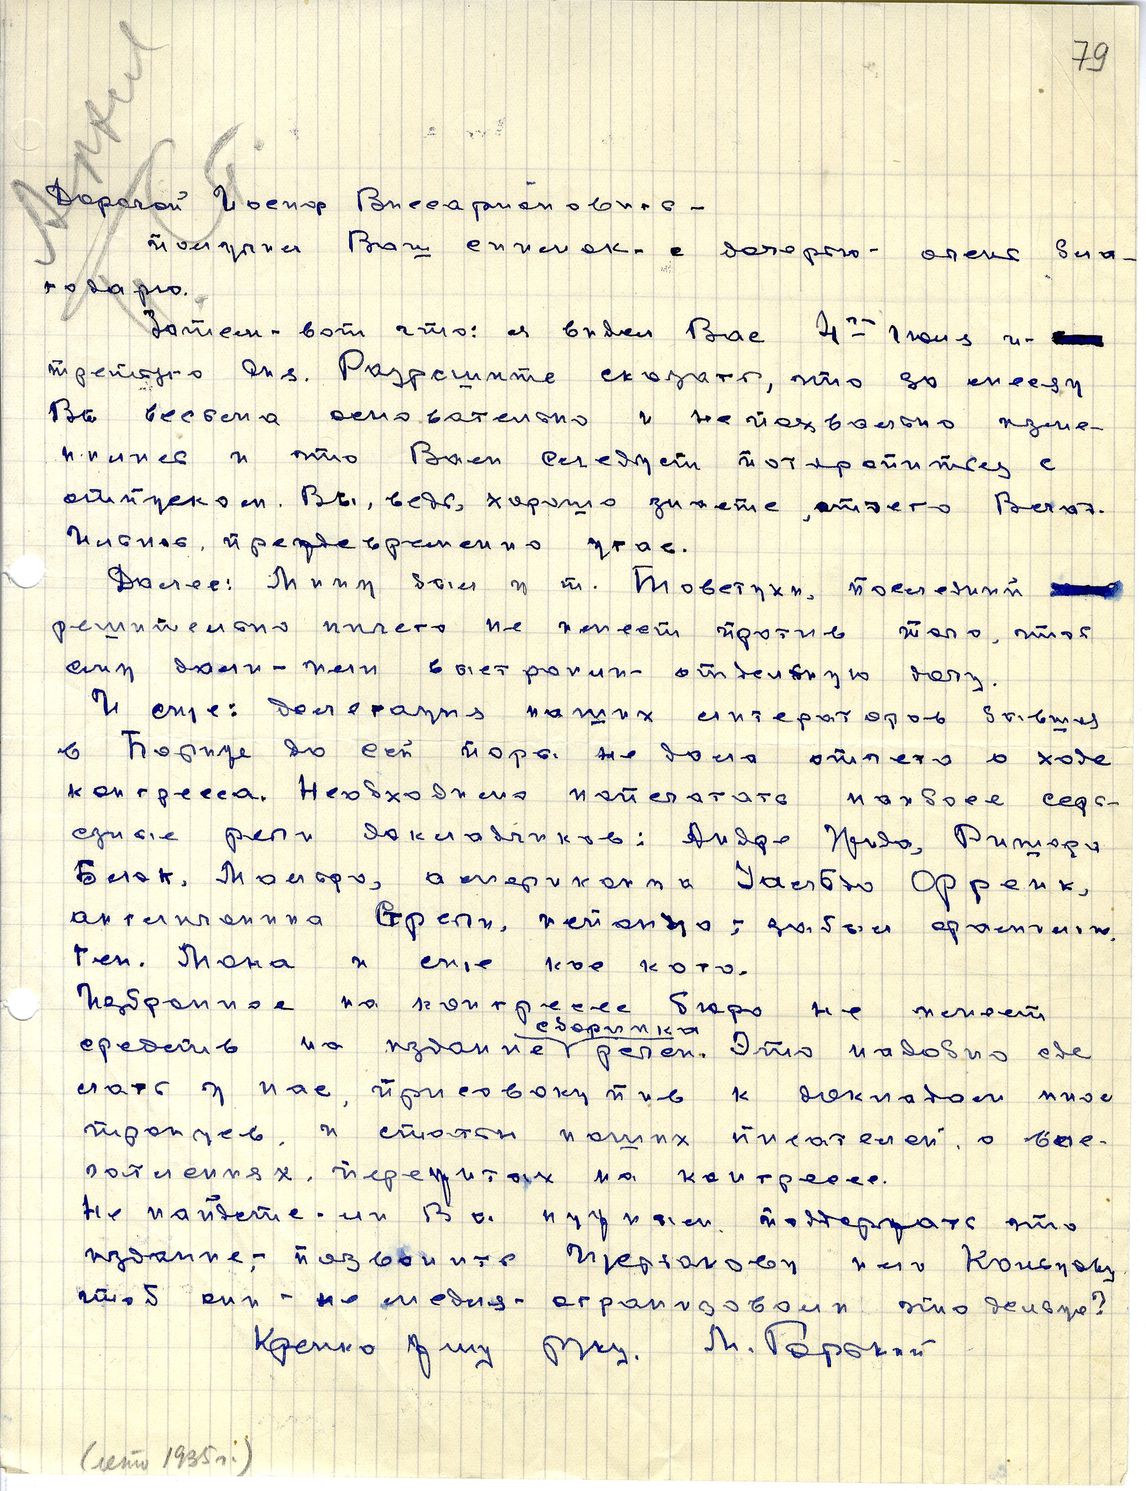 79
Дорогой Иосиф Виссарионович –
получил Ваш снимок – с дочерью – очень бла-
годарю.
Затем – вот что: я видел Вас 4го июля и –
третьего дня. Разрешите сказать, что за месяц
Вы весьма основательно и не похвально изме-
нились и что Вам следует поторопиться с
отпуском. Вы, ведь, хорошо знаете, отчего
Ильич, преждевременно угас.
Далее: Мину был у т. Товстухи, последний
решительно ничего не имеет против того, чтоб
ему дали – или выстроили – отдельную дачу.
И еще: делегация наших литераторов бывшая
в Париже до сей поры не дала отчета о ходе
конгресса. Необходимо напечатать наиболее серь-
езные речи докладчиков: Андре Жида, Ришара
Блок, Мальро, американца Уальдо Фрэнк,
англичанина Стречи, испанца – забыл фамилию,
Ген. Мана и еще кое кого.
Избранное на конгрессе бюро не имеет
сборника
средств на издание речей. Это надобно сде
лать у нас, присовокупив к докладам иност
транцев, и статьи наших писателей, о впе-
чатлениях, пережитых на конгрессе.
Не найдете-ли Вы нужным поддержать это
издание, – позвонить Щербакову или Кольцову
чтоб они – не медля – организовали это дельце?
Крепко жму руку. М. Горький
(лето 1935 г.)